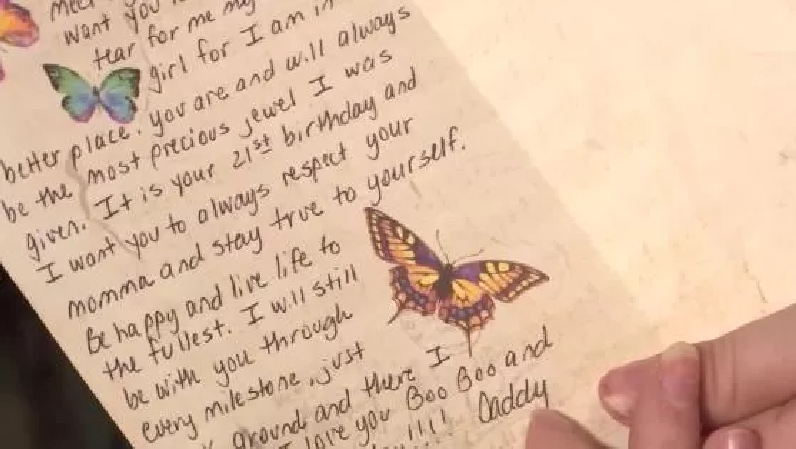 want you
tear for me my
girl for I am in
better place. you are and will always
be the most precious jewel I was
given. It is your 21st birthday and
I want you to always respect your
momma and stay true to yourself.
Be happy and live life to
the fullest. I will still
be with you through
every milestone, just
around and there I
love you Boo Boo and
!!!! Daddy